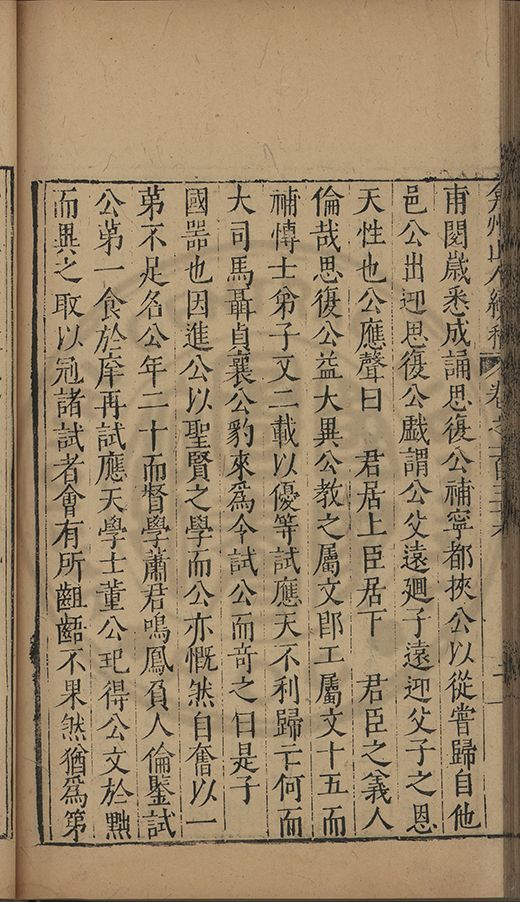 弇州山人續稿 卷之一百三十六
甫閱歲悉成誦思復公補寧都挾公以從嘗歸自他
邑公出迎思復公戲謂公父遠廻子遠迎父子之恩
天性也公應聲曰 君居上臣居下 君臣之義人
倫哉思復公益大異公教之屬文卽工屬文十五而
補博士弟子又二載以優等試應天不利歸亡何而
大司馬聶貞襄公豹來爲令試公而奇之曰是子
國器也因進公以聖賢之學而公亦慨然自奮以一
第不足名公年二十而督學蕭君鳴鳳負人倫鑒試
公第一食於庠再試應天學士董公玘得公文於㸃
而異之取以冠諸試者會有所齟齬不果然猶爲第